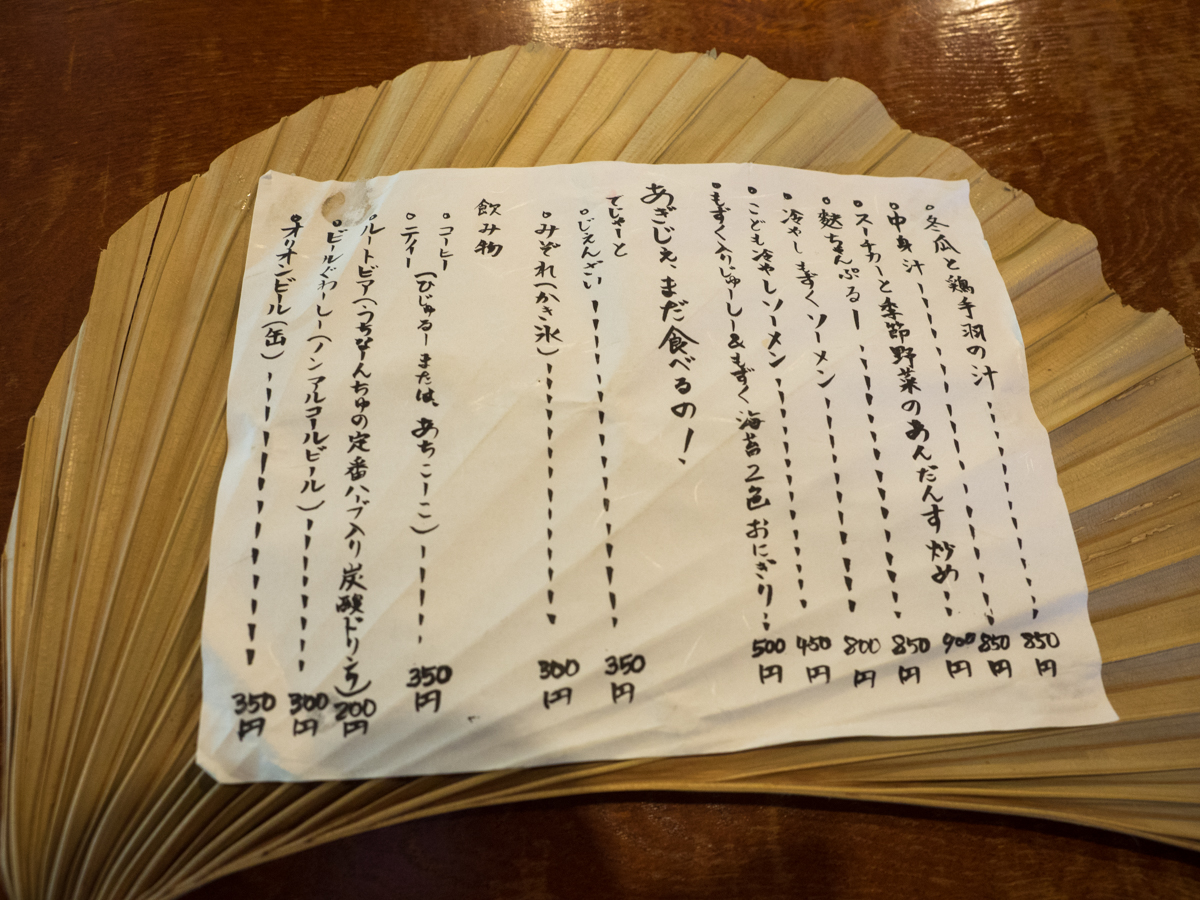 。冬瓜と鶏手羽の汁 850円
。中身汁 850円
。スーチカーと季節野菜のあんだんす炒め 900円
。麩ちゃんぷるー 850円
。冷やしもずくソーメン 800円
。こども冷やしソーメン 450円
。もずく入りじゅーしー&もずく海苔2色おにぎり 500円
あぎじぇ、まだ食べるの!
でじゃーと
。じぇんざい 350円
。みぞれ(かき氷) 300円
飲み物
。コーヒー
。ティー(ひじゅるーまたは、あちこーこ) 350円
。ルートビア(うちなーんちゅの定番ハーブ入り炭酸ドリンク) 200円
。ビールぐわーしー(ノンアルコールビール) 300円
。オリオンビール(缶) 350円